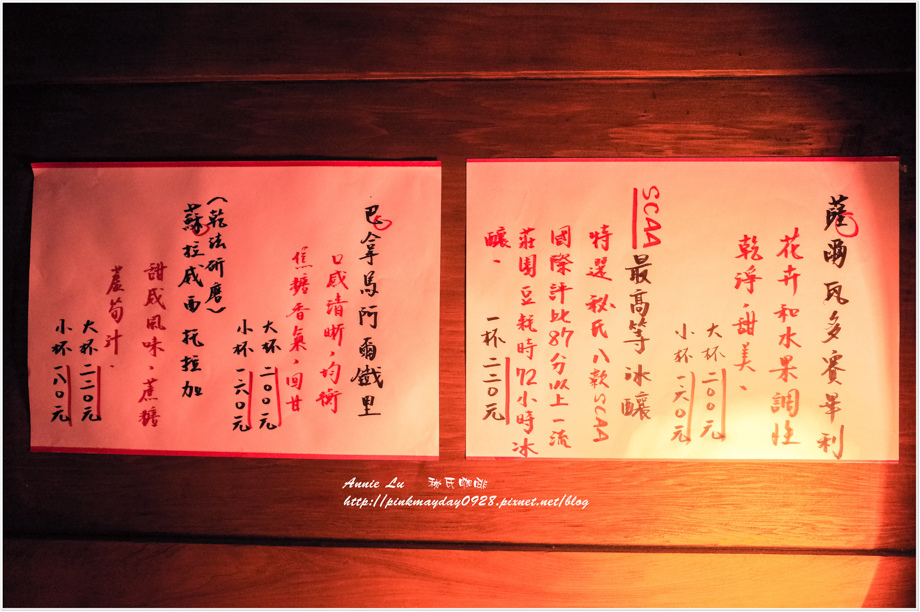 薩爾瓦多賽畢利
花卉和水果調性
乾淨,甜美、
大杯二００元
小杯一六０元
SCAA最高等冰釀
特選秘氏八款SCAA
國際評比87分以上一流
莊園豆耗時72小時冰
釀、
一杯二二０元
巴拿馬阿爾鐵里
口感清晰,均衡
焦糖香氣,回甘
大杯二００元
小杯一六０元
(乾法研磨)
蘇拉威西 托拉加
甜感風味、蔗糖
蘆筍汁.
大杯二二０元
小杯一八０元
Annie Lu 秘氏咖啡
http://pinkmayday0928.pixnet.net/blog